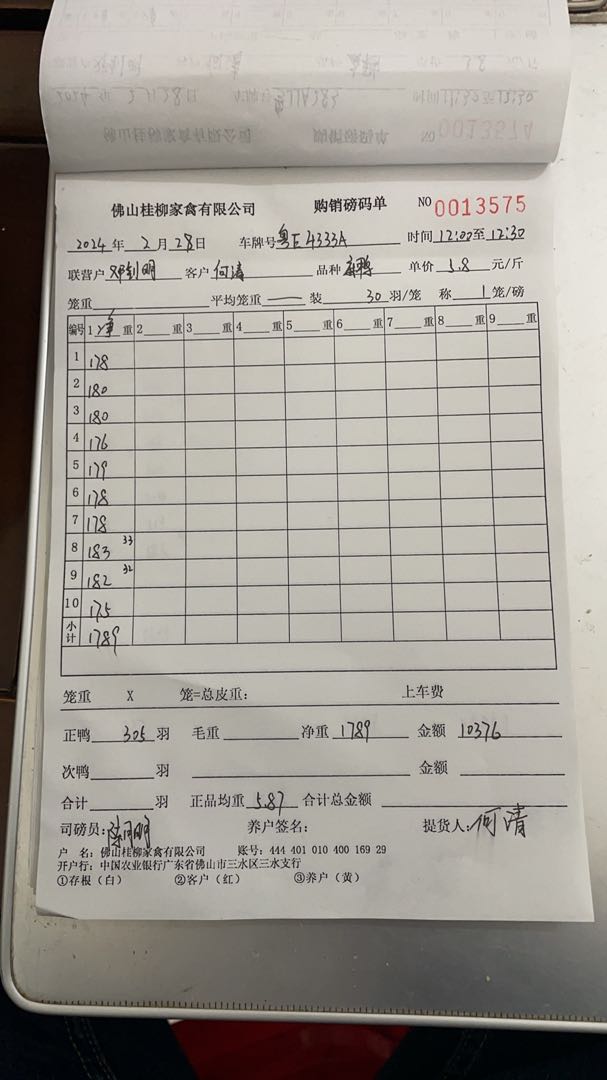 NO 0013574
佛山桂柳家禽有限公司 购销磅码单 NO 0013575
2024 年 2 月 28 日 车牌号 粤E4333A 时间 12:00 至 12:30
联营户 邓钊明 客户 何清 品种 麻鸭 单价 5.8 元/斤
笼重 平均笼重 — 装 30 羽/笼 称 1 笼/磅
编号 1 净 重 2 重 3 重 4 重 5 重 6 重 7 重 8 重 9 重
1 178
2 180
3 180
4 176
5 179
6 178
7 178
8 183 33
9 182 32
10 175
小计 1789
笼重 X 笼=总皮重: 上车费
正鸭 305 羽 毛重 净重 1789 金额 10376
次鸭 羽 金额
合计 羽 正品均重 5.87 合计总金额
司磅员: 养户签名: 提货人: 何清
户 名: 佛山桂柳家禽有限公司 账号: 444 401 010 400 169 29
开户行: 中国农业银行广东省佛山市三水区三水支行
①存根（白） ②客户（红） ③养户（黄）